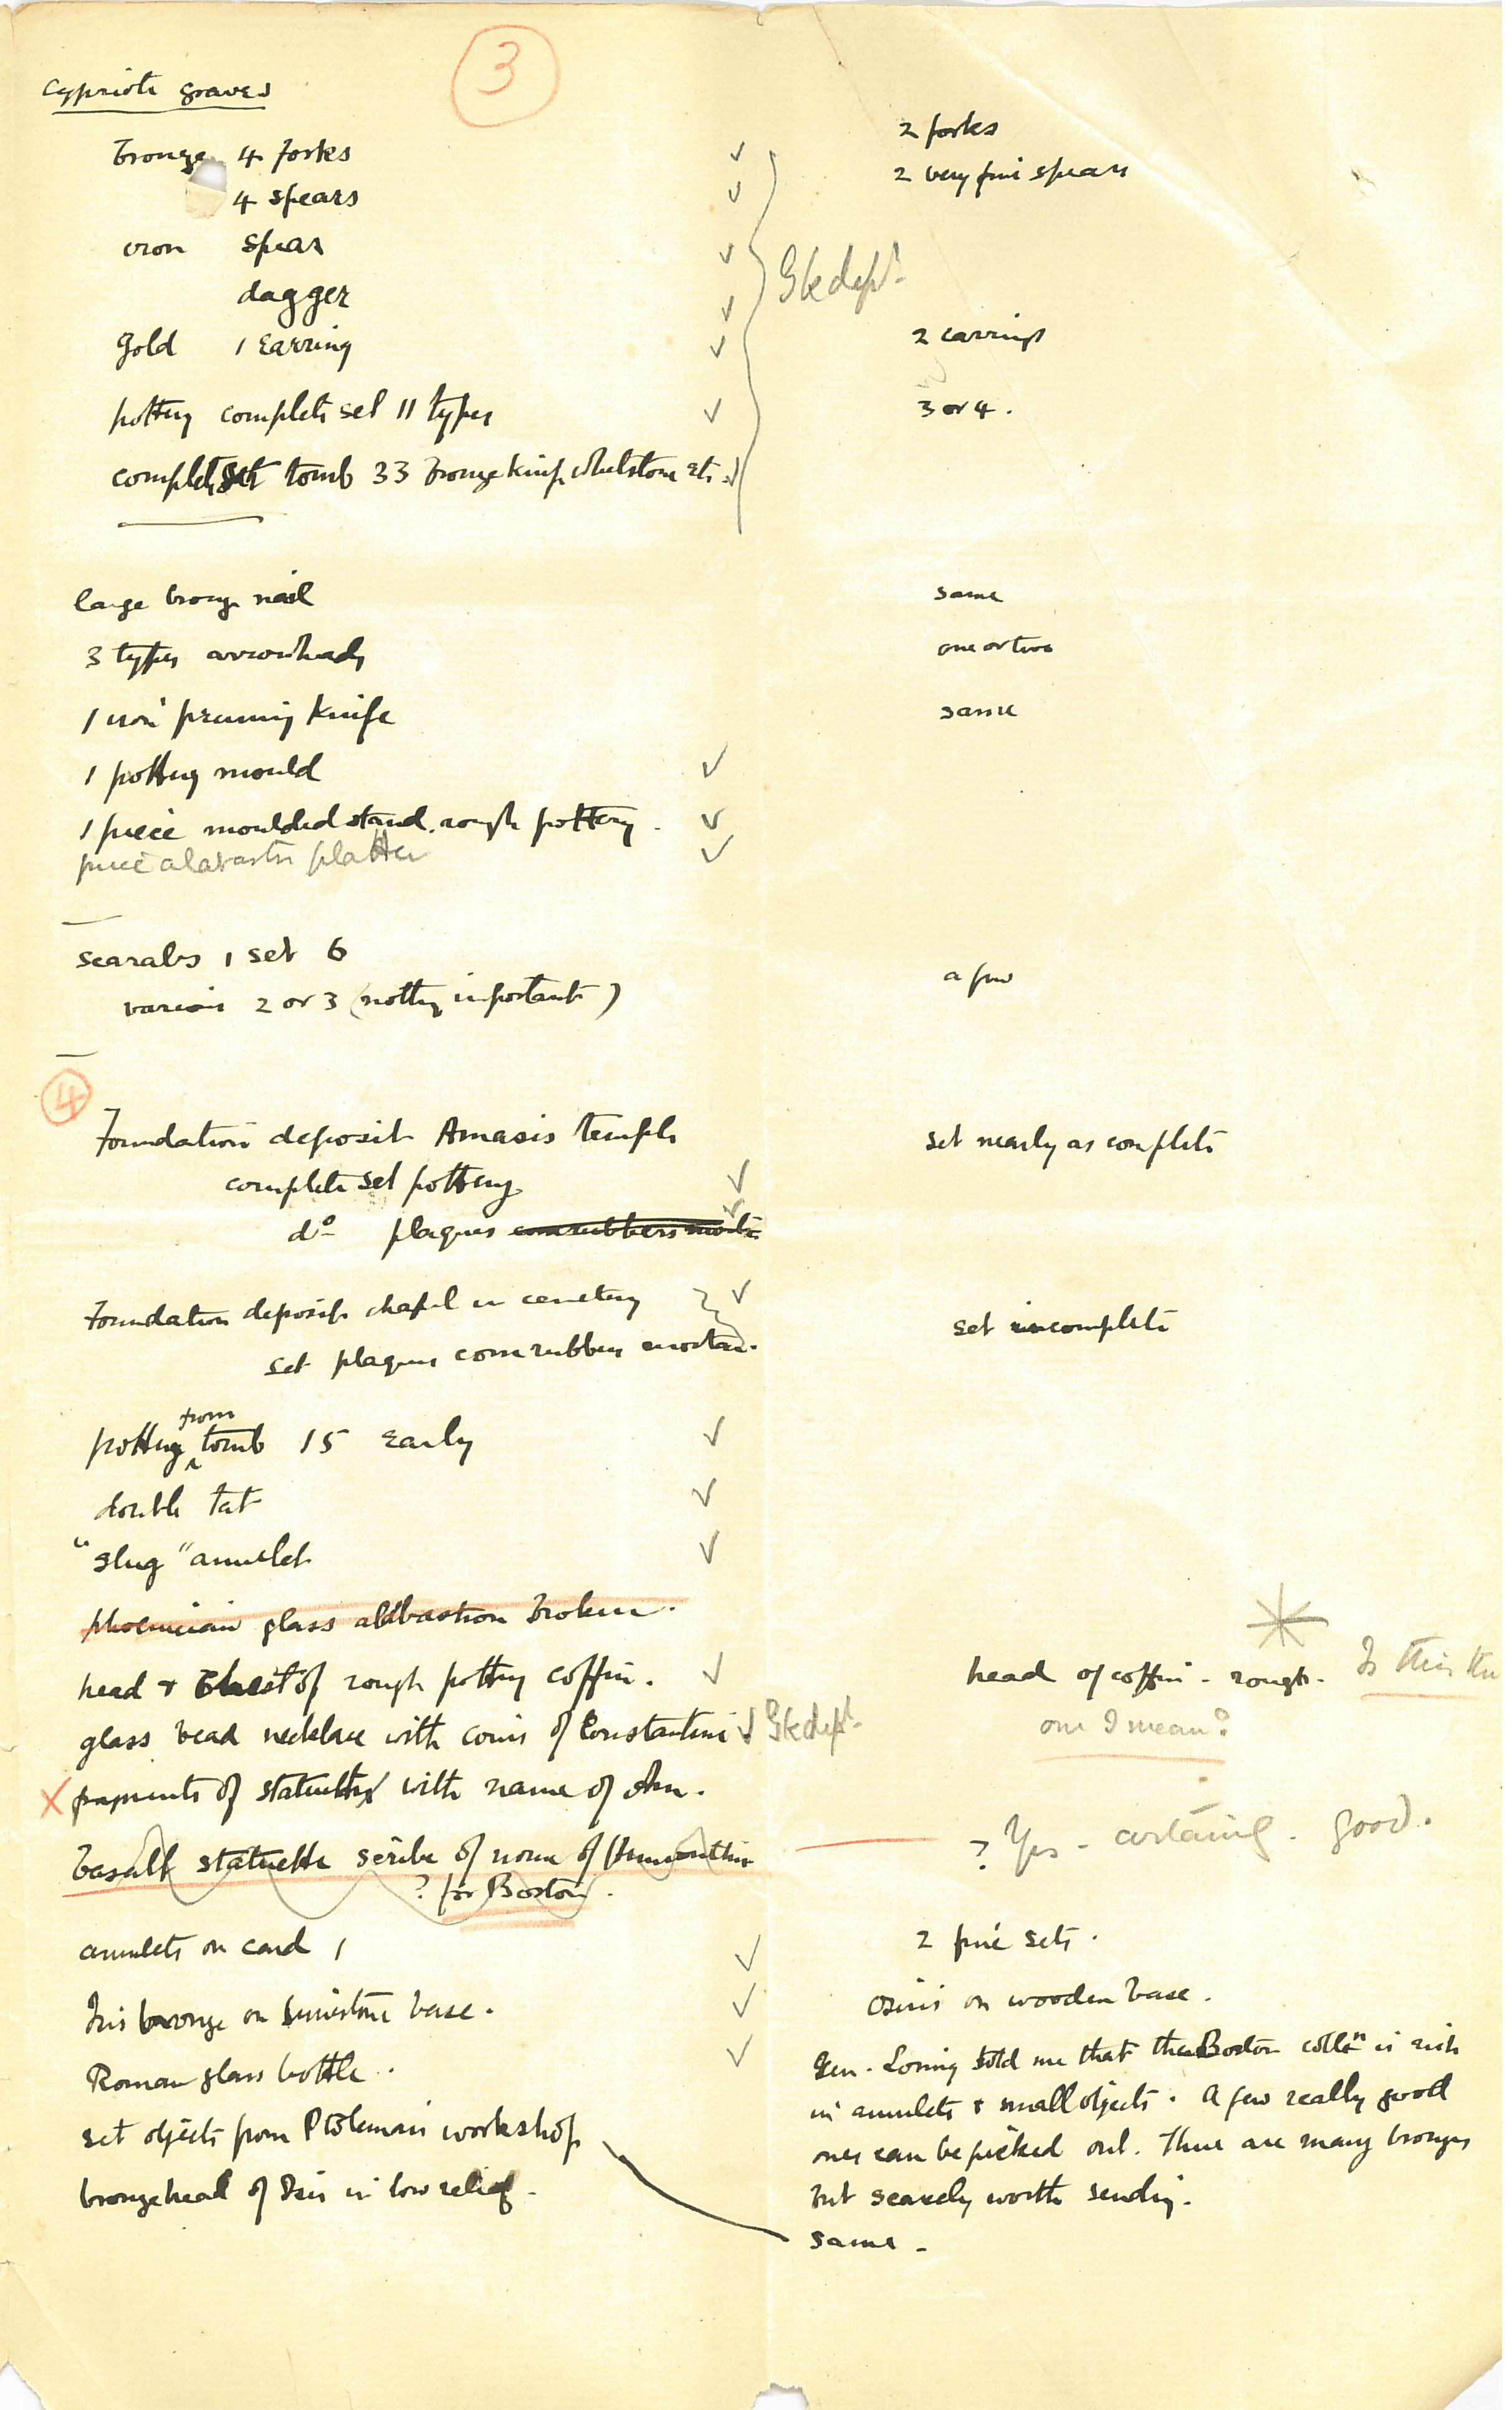 3
Cypriote graves
bronze 4 forks ✓ 2 forks
4 spears ✓ 2 very fine spears
iron spear ✓
Gk dept.
dagger ✓
Gold 1 Earring ✓ 2 earrings
pottery complete set 11 types ✓ 3 or 4.
complete set tomb 33 bronze knife, whetstone etc. ✓
large bronze nail same
3 types arrowheads one or two
1 iron pruning knife same
1 pottery mould ✓
1 piece moulded stand. rough pottery. ✓
piece alabaster platter ✓
scarabs 1 set 6
various 2 or 3 (nothing important) a few
4
Foundation deposit Amasis temple set nearly as complete
complete set pottery ✓
do plaques cornrubbers mortar ✓
Foundation deposits chapel in cemetery ✓
set plaques cornrubbers mortar. set incomplete
from
pottery ^ tomb 15 Early ✓
double tat ✓
"slug" amulet ✓
phoenician glass alabastron broken.
head & chest of rough pottery coffin. ✓ head of coffin - rough. Is this the
one I mean?
glass bead necklace with coins of Constantine ✓ Gk dept.
X fragments of statuette with name of An.
? Yes - certainly. good.
basalt statuette scribe of nome of
? for Boston.
amulets on card 1 ✓ 2 fine sets.
Isis bronze on limestone base. ✓ Osiris on wooden base.
Roman glass bottle. ✓
set objects from Ptolemaic workshop
bronze head of Isis in low relief.
Gen. Loring told me that the Boston colln is rich
in amulets & small objects. A few really good
ones can be picked out. There are many bronzes
but scarcely worth sending.
same.